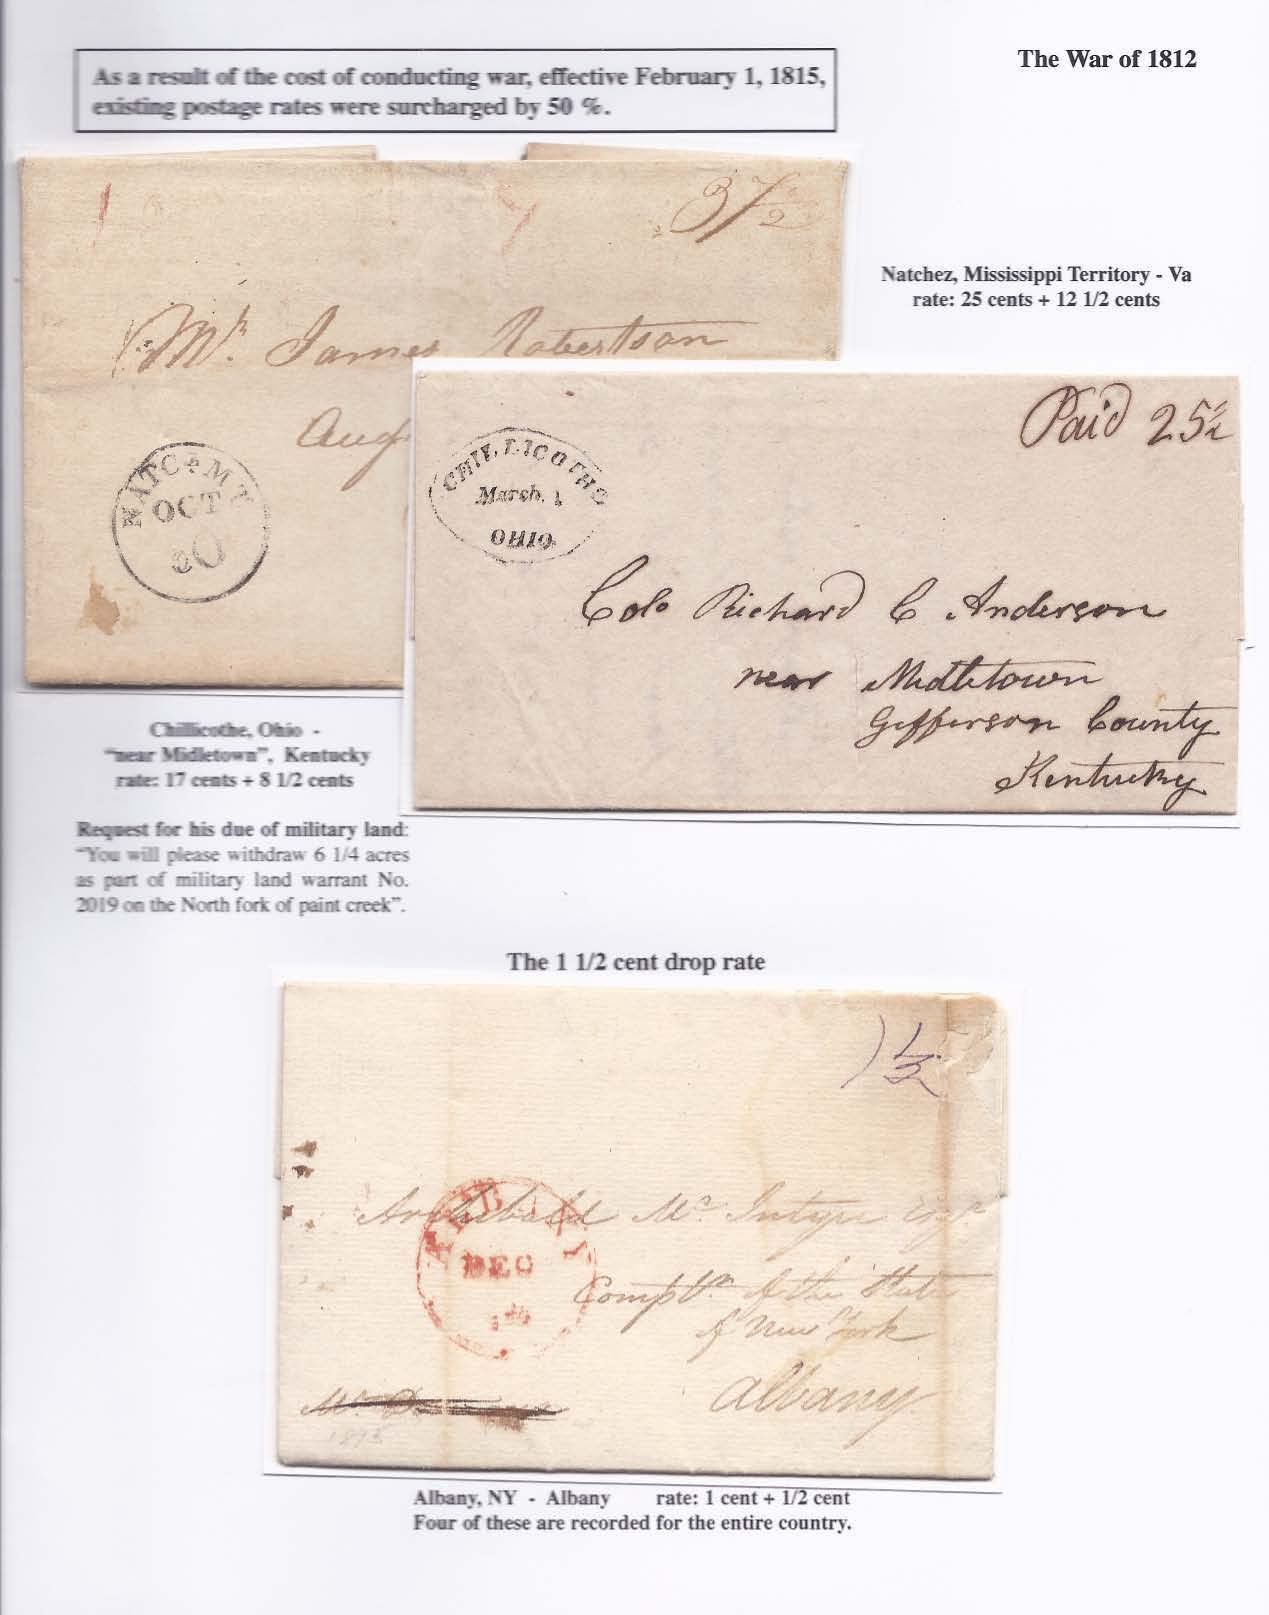 The War of 1812
As a result of the cost of conducting war, effective February 1, 1815,
existing postage rates were surcharged by 50 %.
37 1/2
Natchez, Mississippi Territory - Va
rate: 25 cents + 12 1/2 cents
Mr. James Robertson
Aug
NATCZ M T
OCT
30
Paid 25 1/2
CHILLICOTHE
March. 1
OHIO
Colo Richard C Anderson
near Midletown
Jefferson County
Kentucky
Chillicothe, Ohio -
“near Midletown”, Kentucky
rate: 17 cents + 8 1/2 cents
Request for his due of military land:
“You will please withdraw 6 1/4 acres
as part of military land warrant No.
2019 on the North fork of paint creek”.
The 1 1/2 cent drop rate
1 1/2
ALBANY
DEC
Archibald Mc Intyre Esqr
Comptr. of the State
of New York
Albany
Albany, NY - Albany rate: 1 cent + 1/2 cent
Four of these are recorded for the entire country.